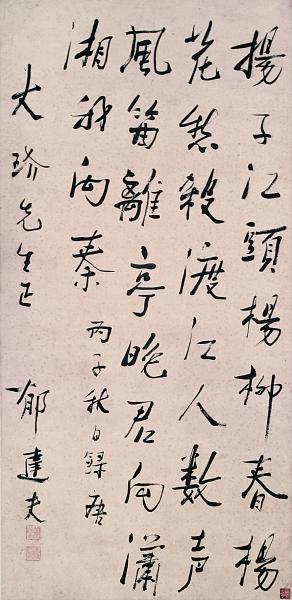 揚子江頭楊柳春楊
花愁殺渡江人数声
風笛離亭晚君向瀟
湘我向秦 丙子秋日録唐
大琦先生正
郁達夫